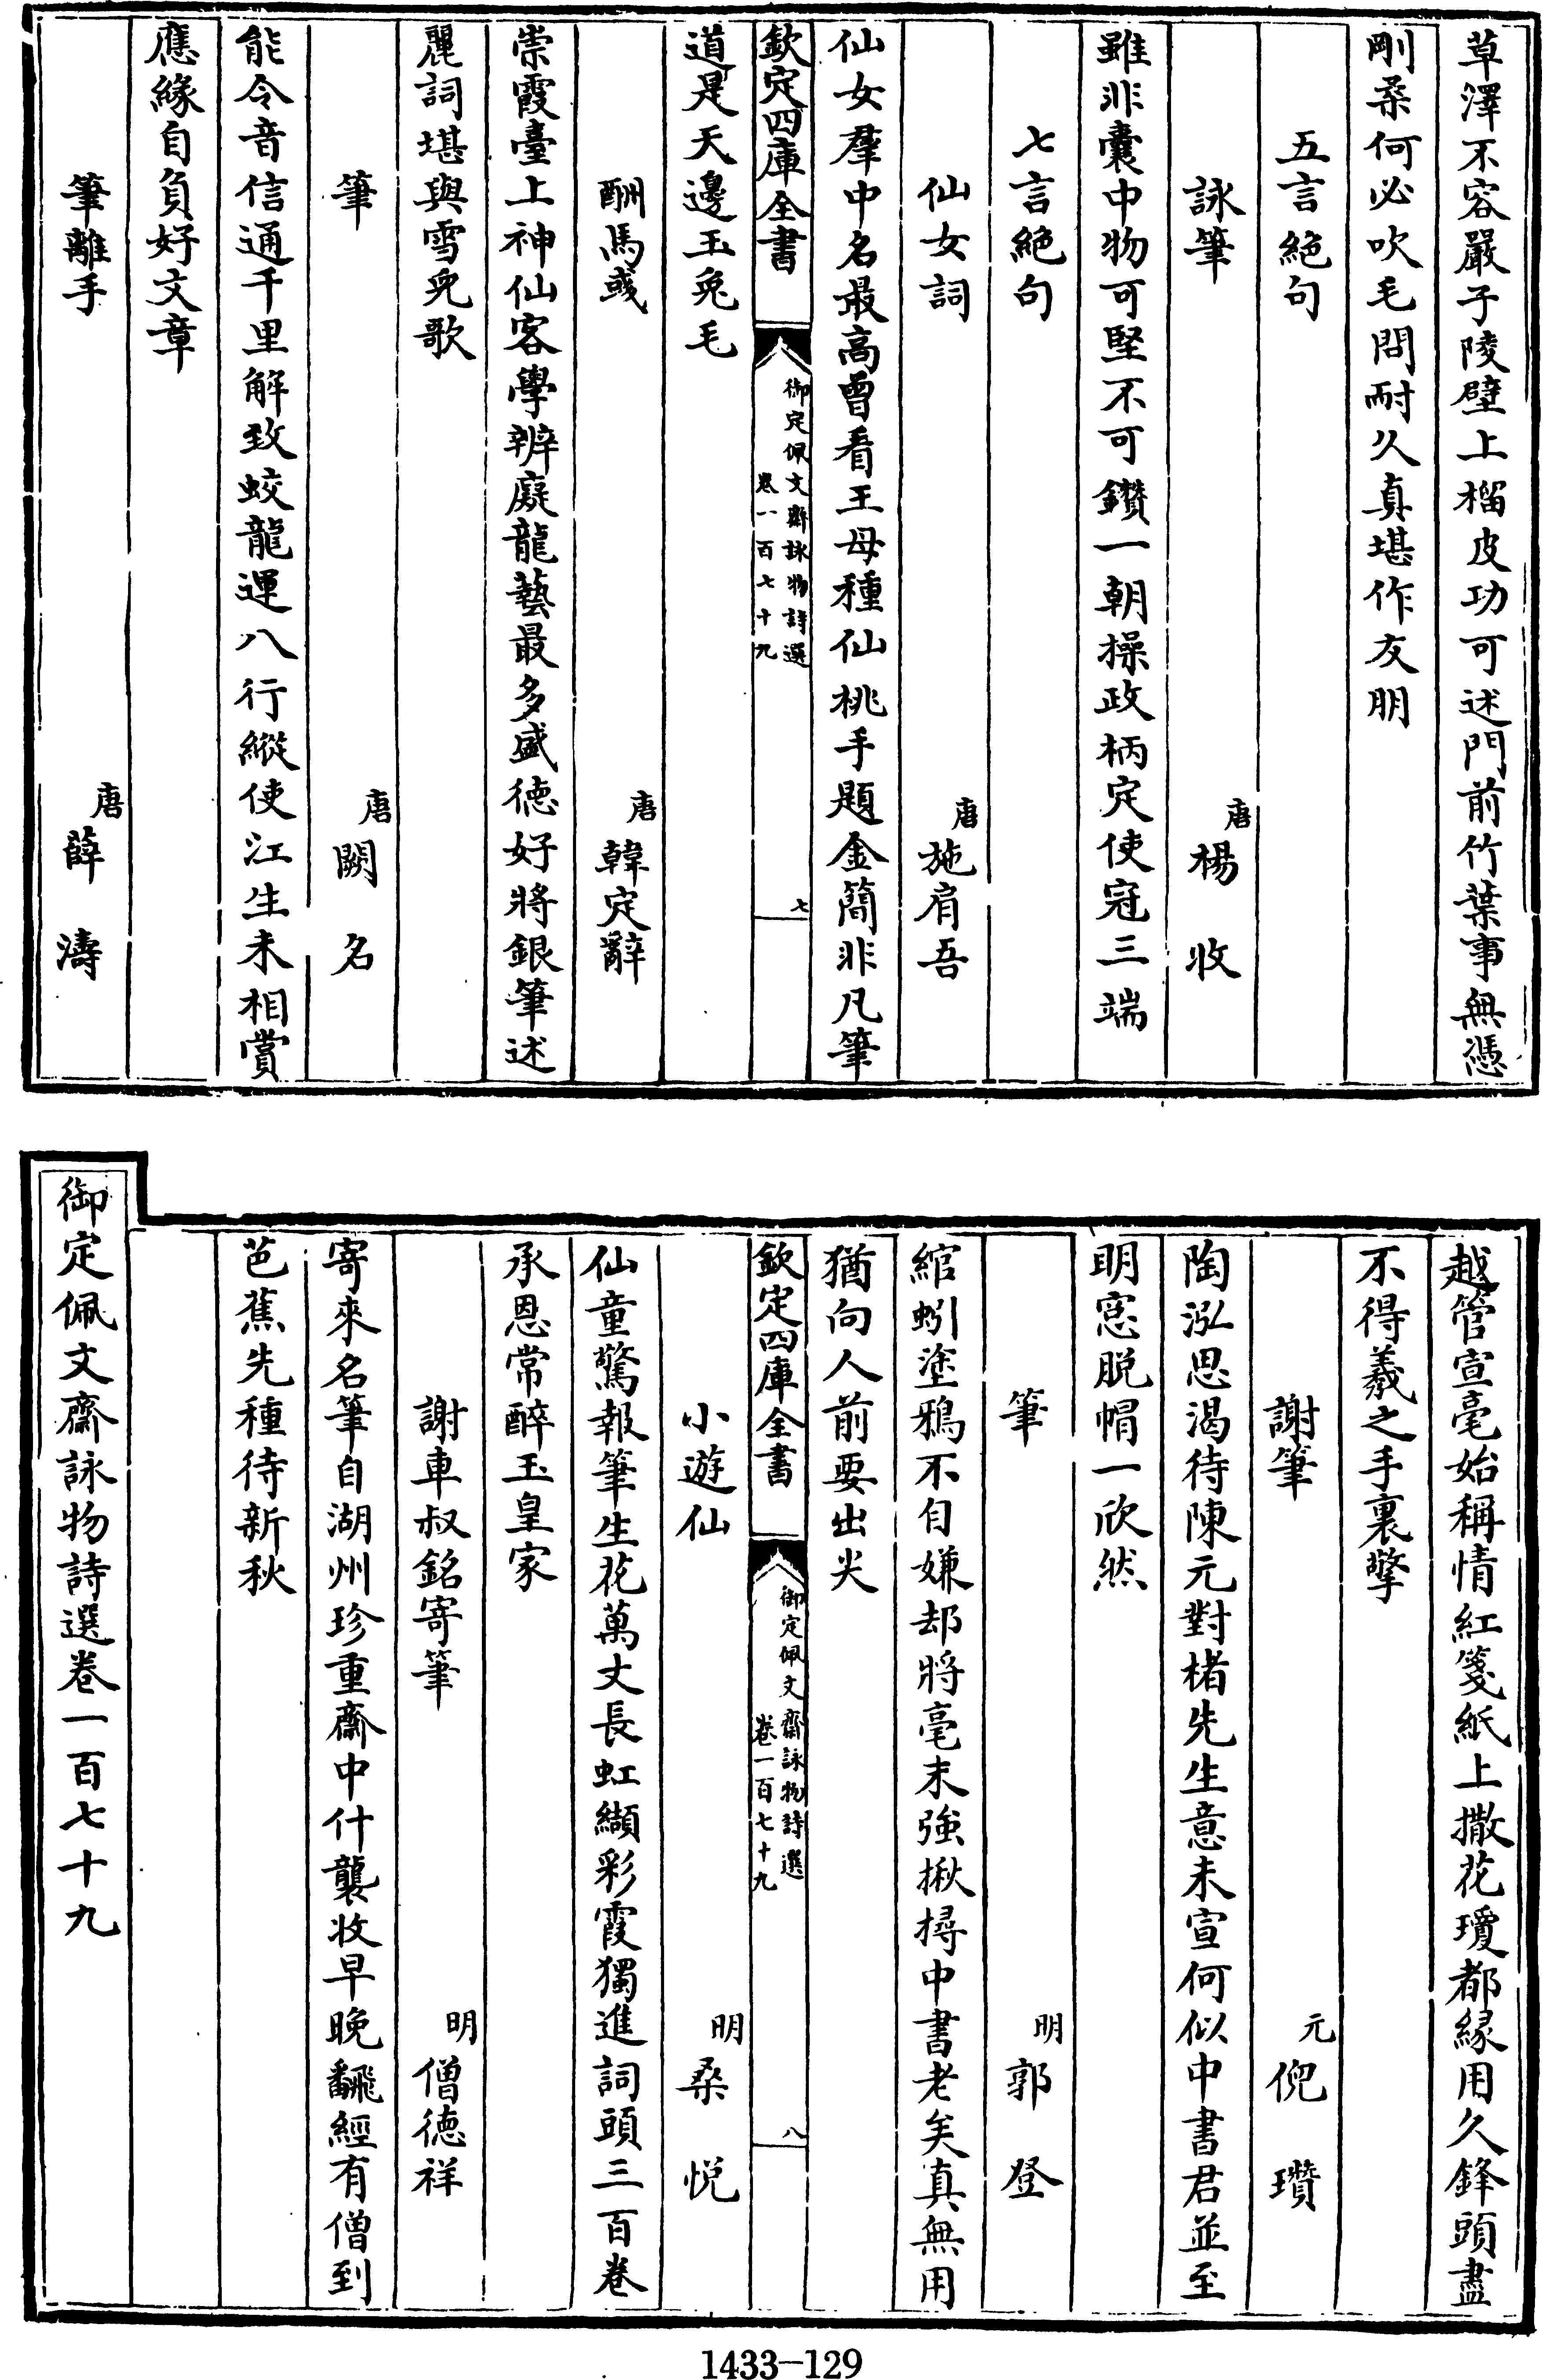 草澤不容嚴子陵壁上榴皮功可述門前竹葉事無憑
剛柔何必吹毛問耐久真堪作友朋
五言絶句
詠筆
唐楊收
雖非囊中物可堅不可鑽一朝操政柄定使冠三端
七言絶句
仙女詞
唐施肩吾
仙女羣中名最高曾看王母種仙桃手題金簡非凡筆
欽定四庫全書
御定佩文齋詠物詩選
卷一百七十九
七
道是天邊玉兔毛
酬馬彧
唐韓定辭
崇霞臺上神仙客學辨癡龍藝最多盛德好將銀筆述
麗詞堪與雪兒歌
筆
唐闕名
能令音信通千里解致蛟龍運八行縱使江生未相賞
應緣自負好文章
筆離手
唐薛濤
越管宣毫始稱情紅箋紙上撒花瓊都緣用久鋒頭盡
不得羲之手裏擎
謝筆
元倪瓚
陶泓思渴待陳元對楮先生意未宣何似中書君並至
明窓脱帽一欣然
筆
明郭登
綰蚓塗鴉不自嫌却將毫末強揪撏中書老矣真無用
猶向人前要出尖
欽定四庫全書
御定佩文齋詠物詩選
卷一百七十九
八
小遊仙
明桑悦
仙童驚報筆生花萬丈長虹纈彩霞獨進詞頭三百卷
承恩常醉玉皇家
謝車叔銘寄筆
明僧德祥
寄來名筆自湖州珍重齋中什襲收早晚飜經有僧到
芭蕉先種待新秋
御定佩文齋詠物詩選卷一百七十九
1433-129